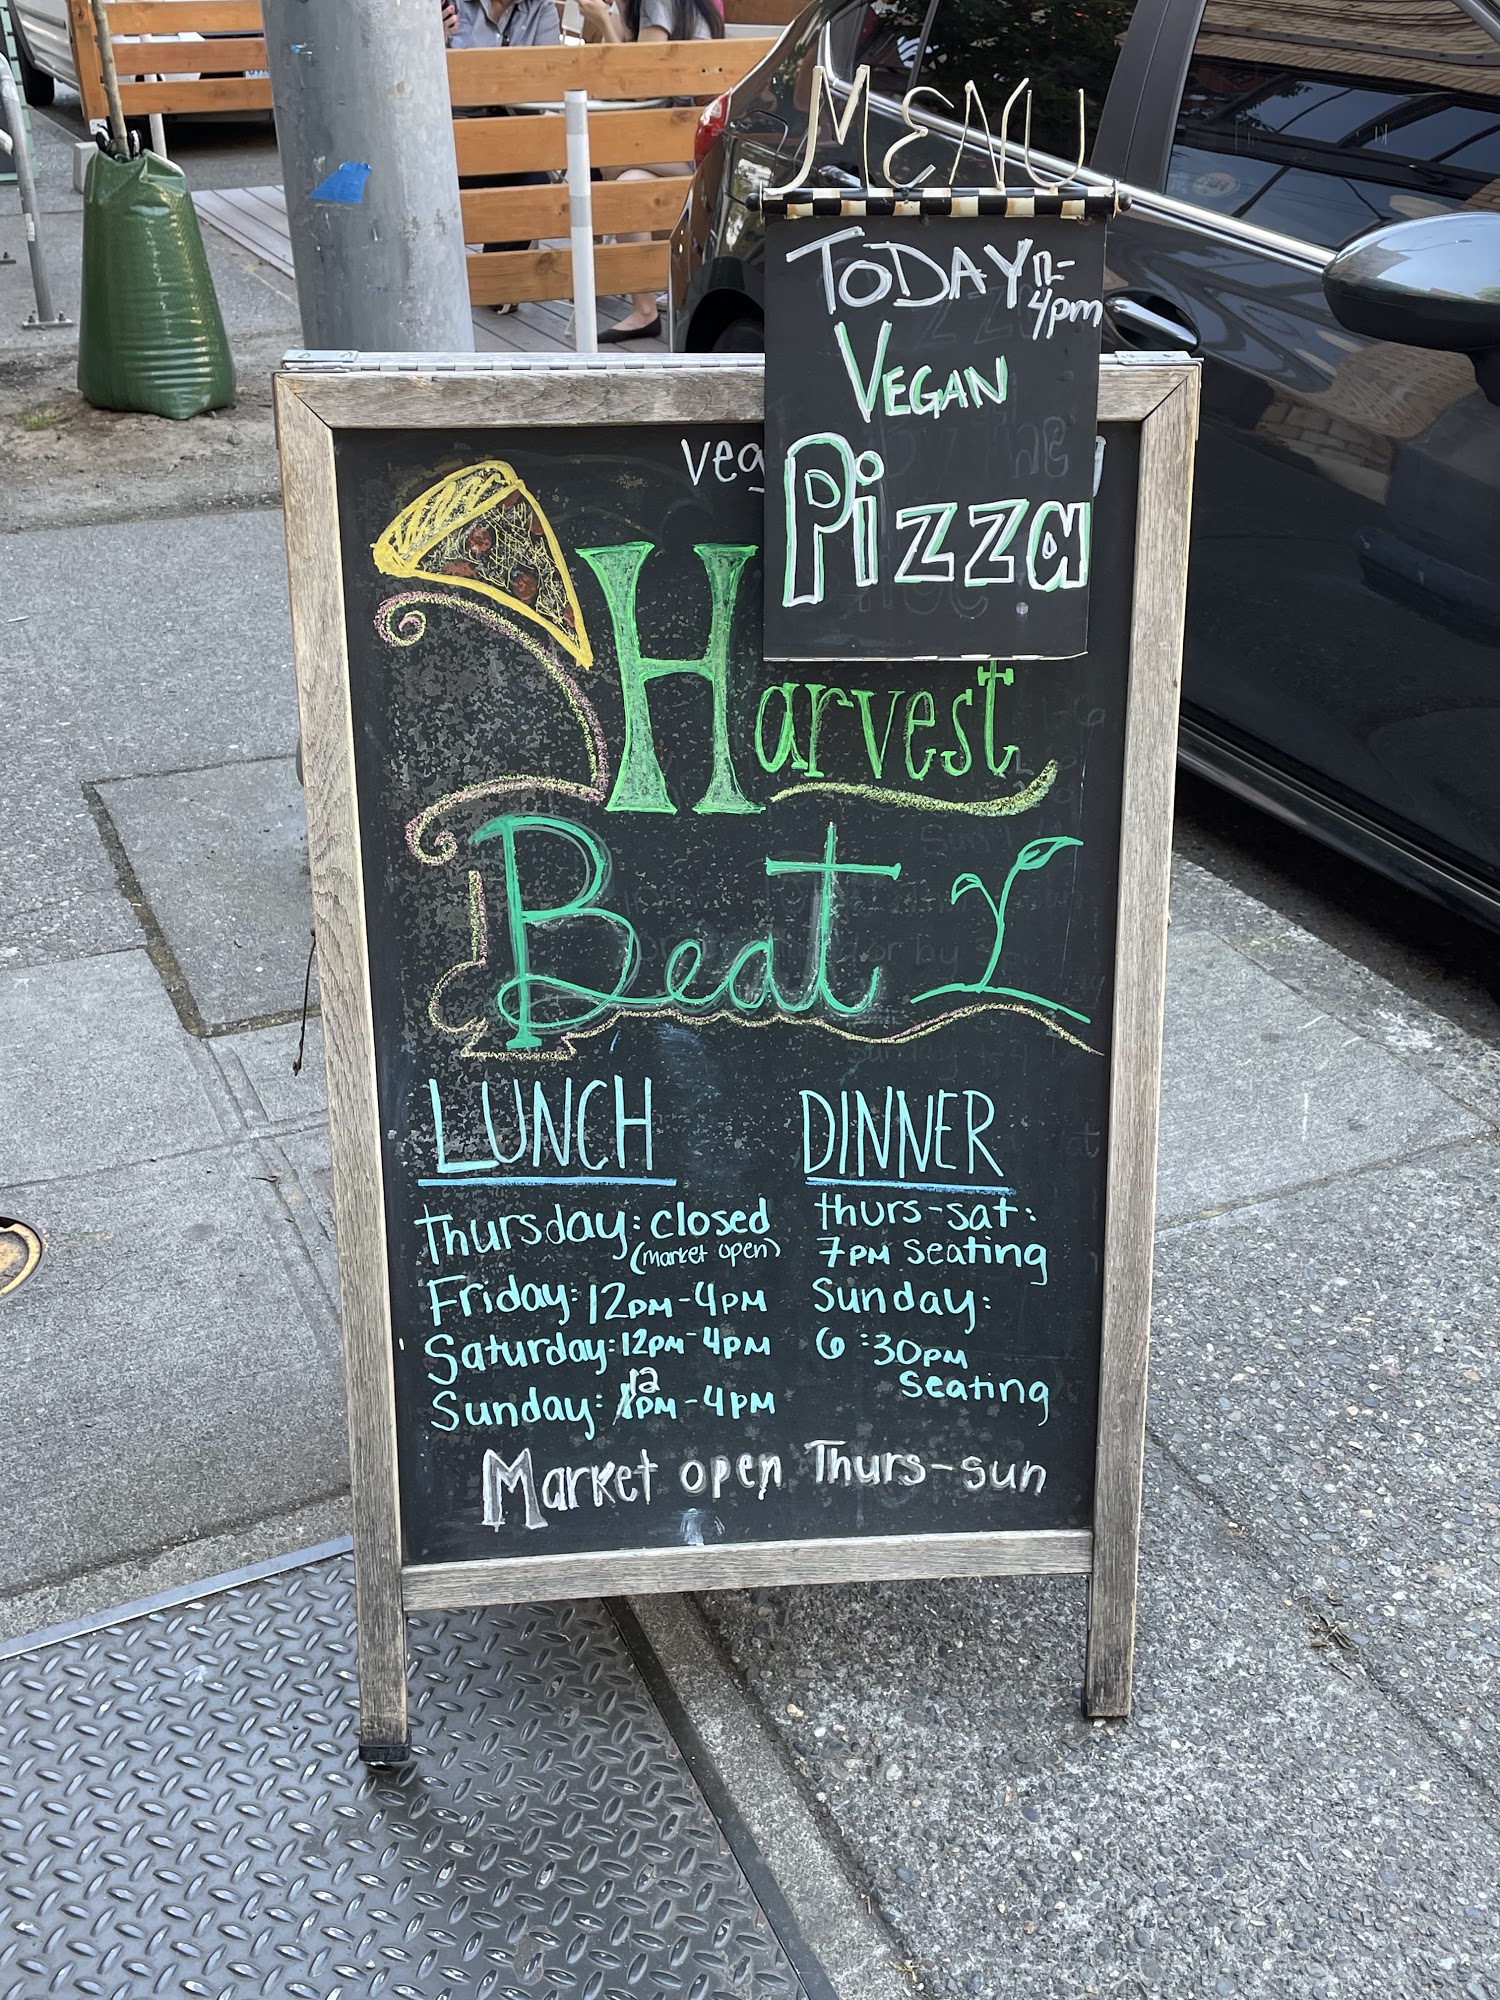 MENU
TODAY 12-
4pm
VEGAN
Pizza
Harvest
Beat
LUNCH
Thursday: closed
(market open)
Friday: 12PM-4PM
Saturday: 12PM-4PM
Sunday: 12PM-4PM
DINNER
thurs-sat:
7PM seating
Sunday:
6:30PM
seating
Market open Thurs-sun